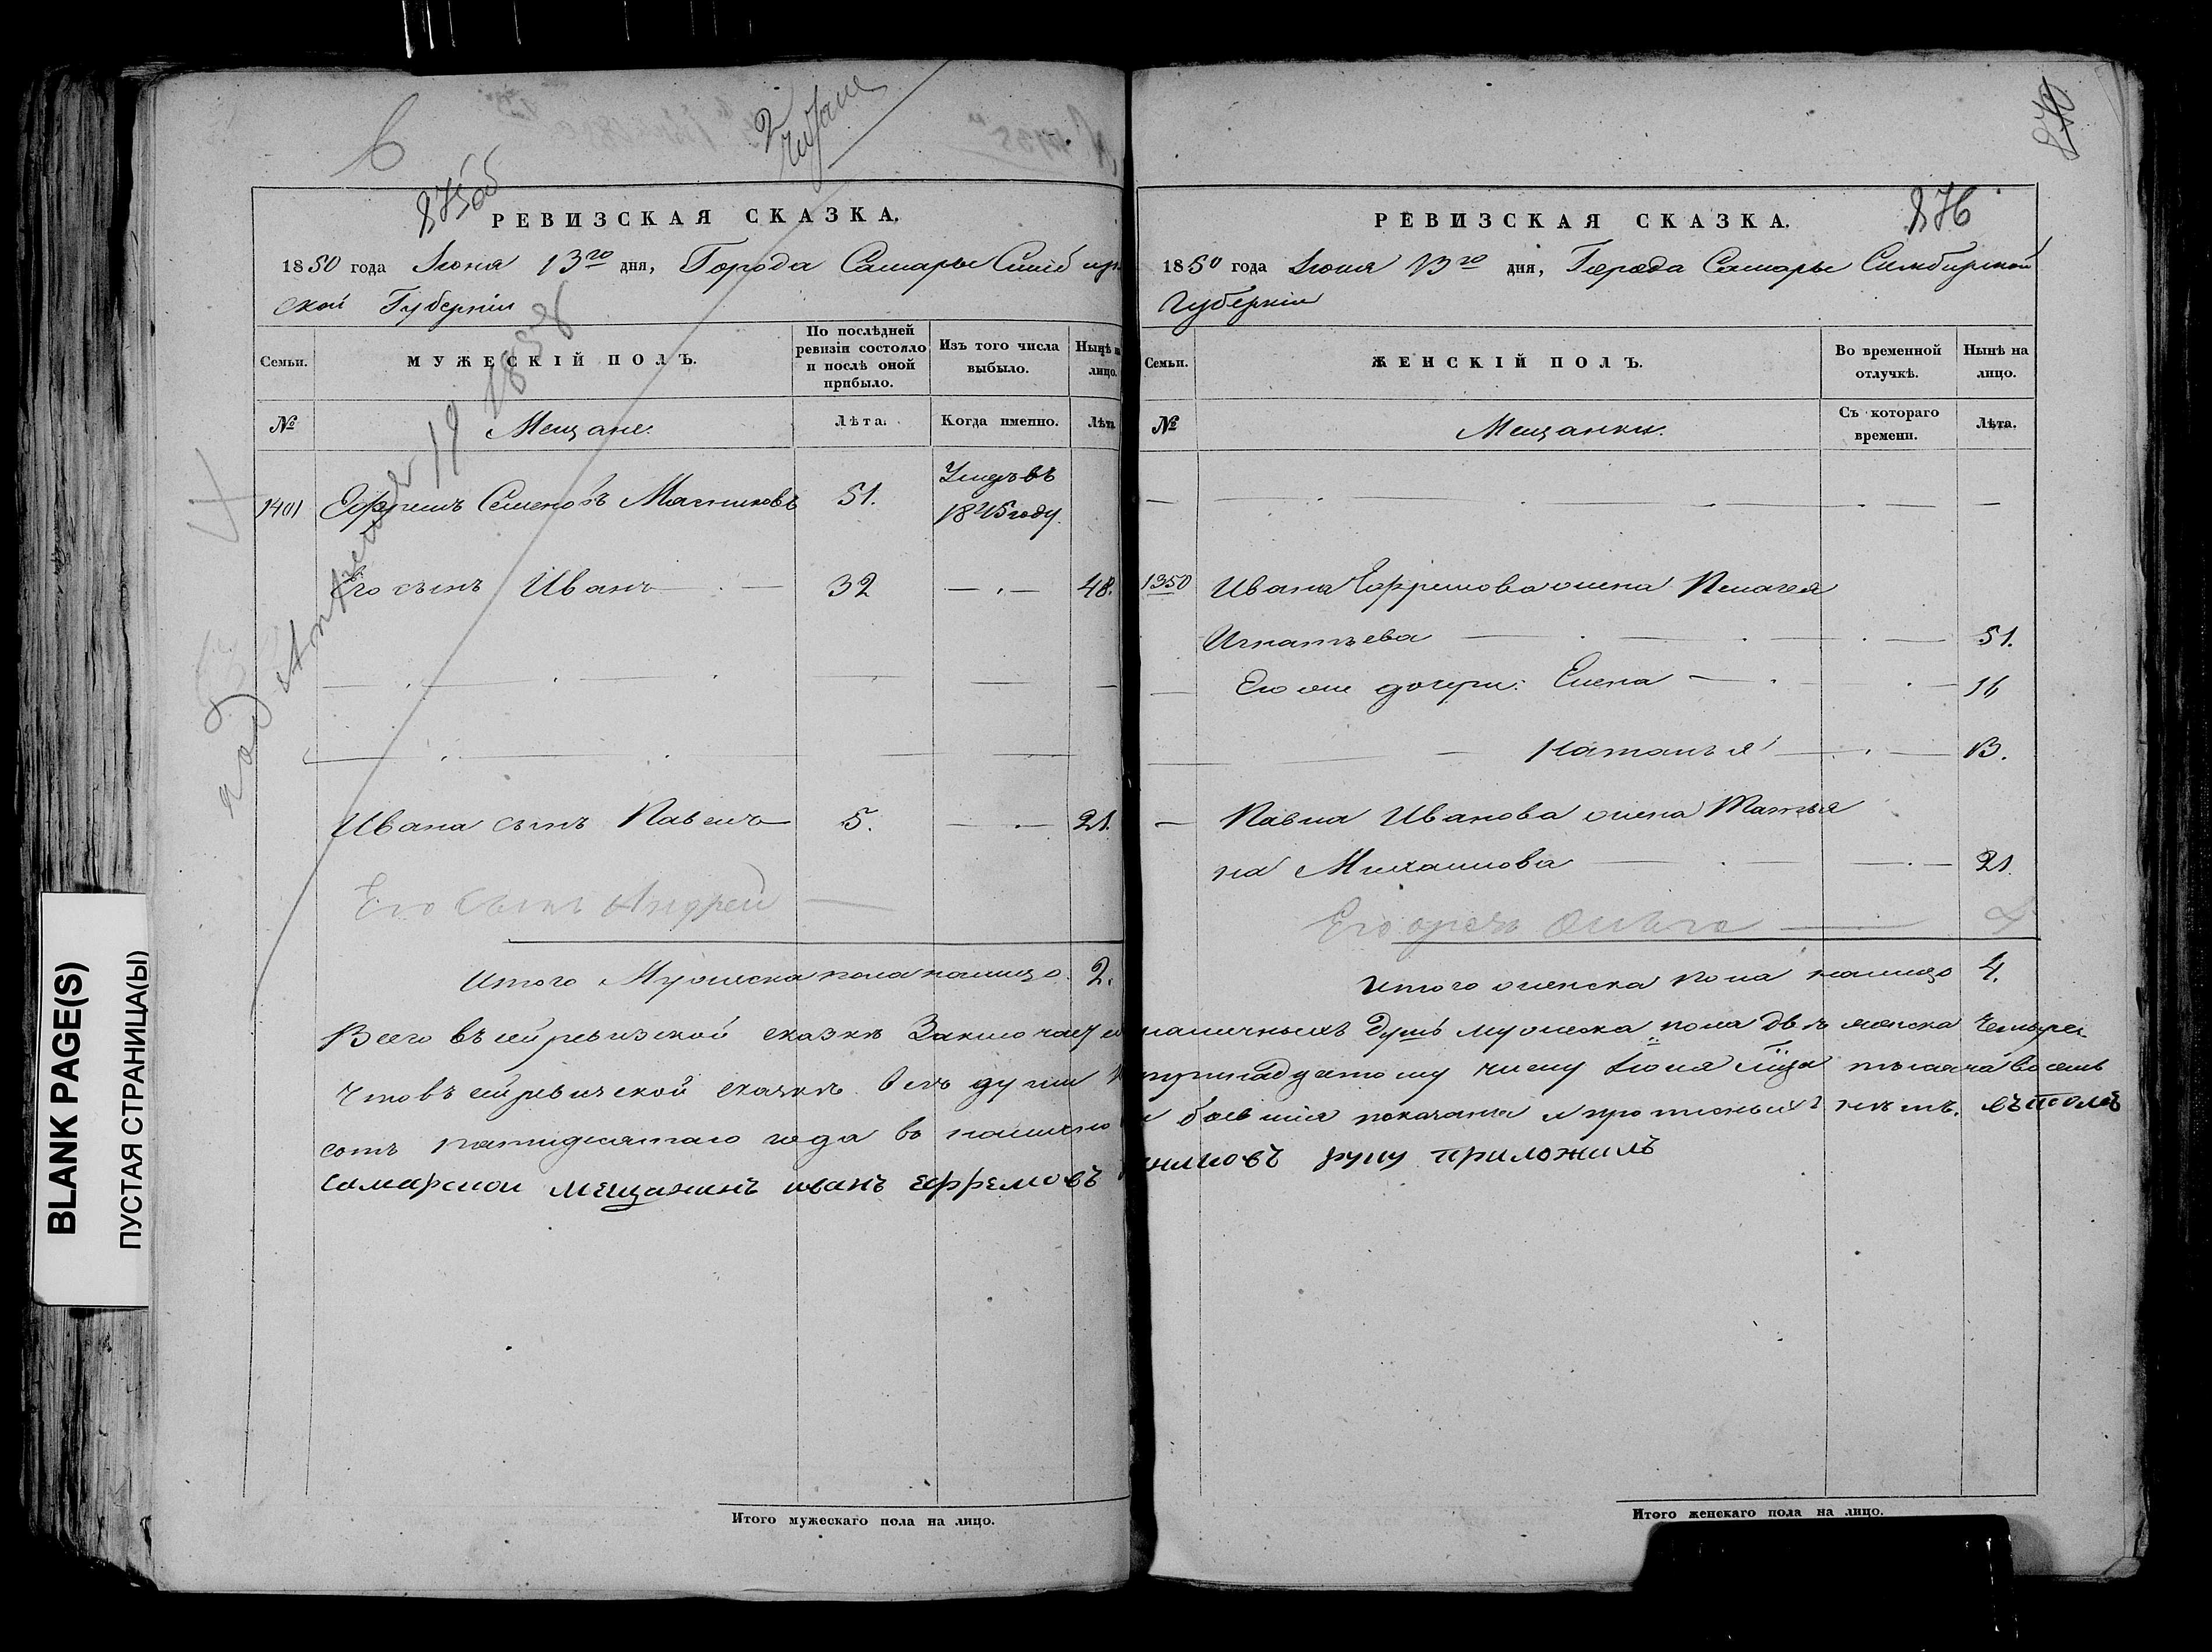 6
875об
РЕВИЗСКАЯ СКАЗКА.
1850 года Июня 13го дня, Города Самары Симбир
ской Губернии
Семьи.
МУЖЕСКІЙ ПОЛЪ.
По послѣдней ревизіи состояло и послѣ оной прибыло.
Изъ того числа выбыло.
Нынѣ на лицо.
№
Мещане.
Лѣта.
Когда именно.
Лѣта
1401 Ефремъ Семеновъ Масниковъ 51. Умеръ въ
1845 году.
Его сынъ Иванъ 32 48.
Ивана сынъ Павелъ 5. 21.
Его сынъ Андрей
Итого Мужеска пола налицо. 2.
876
РЕВИЗСКАЯ СКАЗКА.
1850 года Июня 13го дня, Города Самары Симбирской
Губернии
Семьи.
ЖЕНСКІЙ ПОЛЪ.
Во временной отлучкѣ.
Нынѣ на лицо.
№
Мещанки.
Съ котораго времени.
Лѣта.
1350 Ивана Ефремова жена Пелагея
Игнатьева 51.
Его же дочери: Елена 16
Наталья 13.
Павла Иванова жена Татья
на Михаилова 21.
Его дочь Ольга
Итого женска пола налицо 4.
Всего въ сей ревизской сказке Заключает наличныхъ Душъ мужеска пола две женска Четыре.
Что въ сей ревизской сказке Все души тринадцатому числу Июня тысяча восемь
сотъ пятидесятаго года в налич были показаны и прописныхъ нетъ. въ томъ
самарской мещанинъ иванъ ефремовъ руку приложилъ
Итого мужескаго пола на лицо.
Итого женскаго пола на лицо.
BLANK PAGE(S)
ПУСТАЯ СТРАНИЦА(Ы)